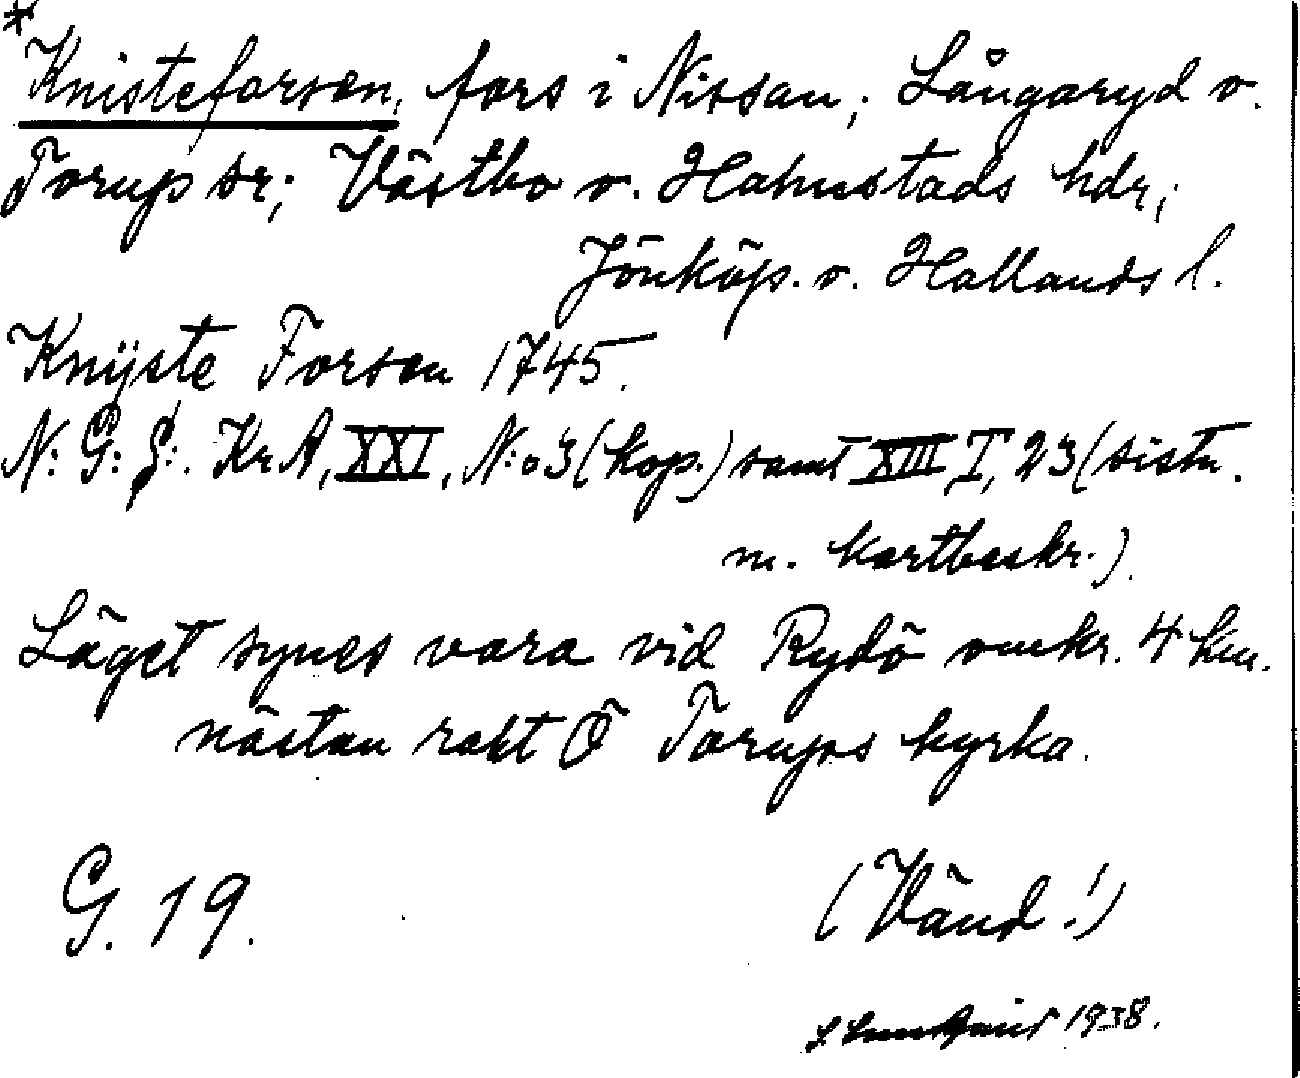 *Knisteforsen, fors i Nissan; Långaryd o.
Torup sr; Västbo o. Halmstads hdr;
Jönköp. o. Hallands l.
Knijste Forsen 1745.
N: G: S:. KrA, XXI, N:o 3 (kop.) samt XIII, I, 23 (sistn.
m. kartbeskr.)
Läget synes vara vid Rydö omkr. 4 km.
nästan rakt Ö Torups kyrka.
G. 19.
(Vänd!)
1938.